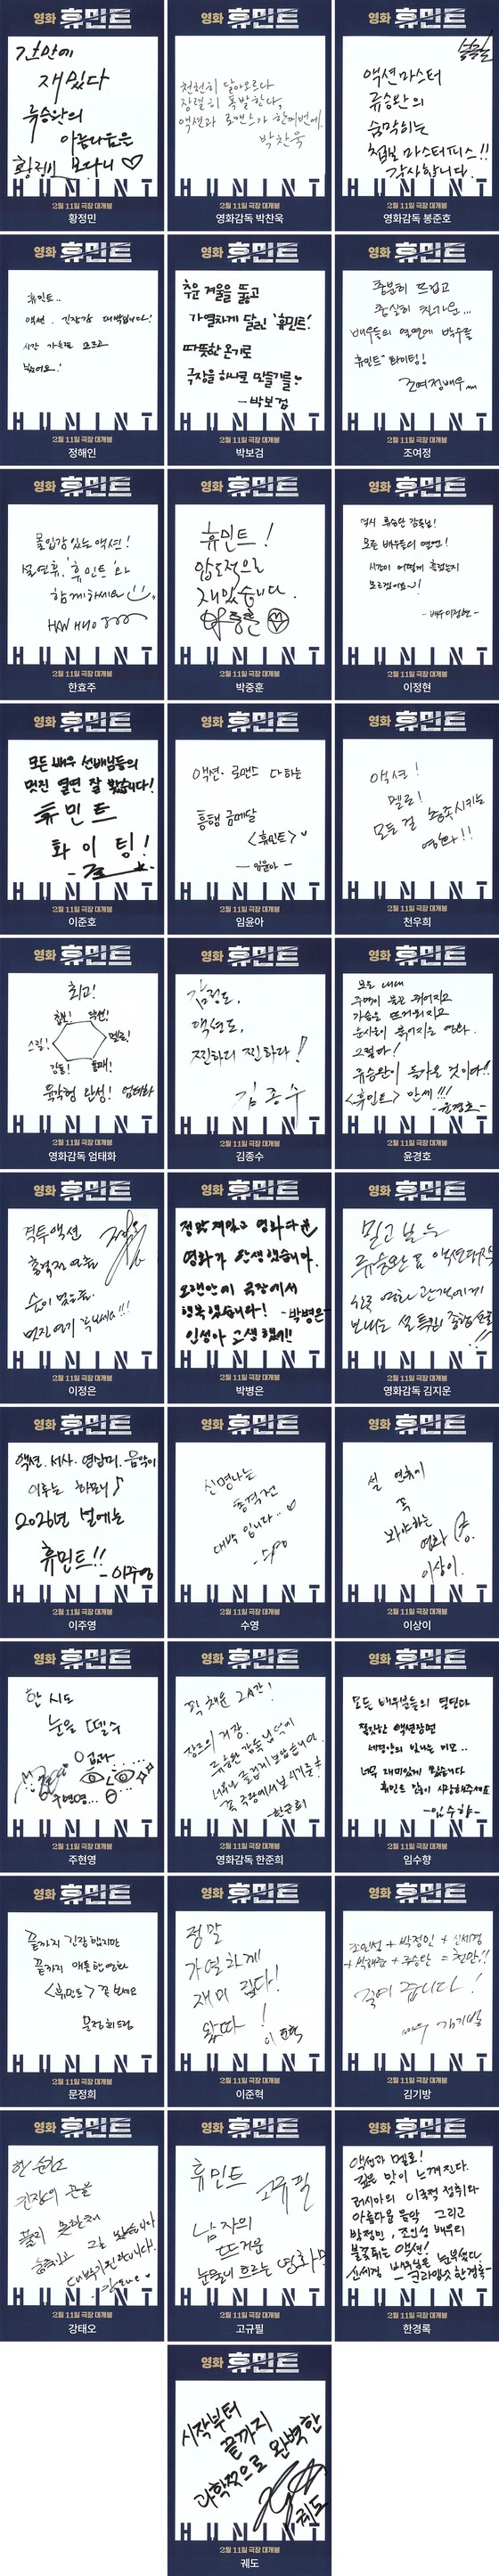 영화 휴민트
간만에
재밌다
류승완의
아름다움은
황정민 보다니 ♡
HUMINT
2월 11일 극장 대개봉
황정민
영화 휴민트
천천히 달아오르다
장렬히 폭발한다,
액션과 로맨스가 한꺼번에.
박찬욱
2월 11일 극장 대개봉
영화감독 박찬욱
영화 휴민트
액션마스터
류승완의
숨막히는
첩보 마스터피스!!
감사합니다.
HUMINT
2월 11일 극장 대개봉
영화감독 봉준호
영화 휴민트
휴민트..
액션, 긴장감 대박입니다!
시간 가는줄 모르고
봤어요!
HUMINT
2월 11일 극장 대개봉
정해인
영화 휴민트
추운 겨울을 뚫고
가열차게 달릴! '휴민트'!
따뜻한 온기로
극장을 하나로 만들기를♥
-박보검
HUMINT
2월 11일 극장 대개봉
박보검
영화 휴민트
충분히 뜨겁고
배우들의 열연에 박수를
휴민트 화이팅!
조여정배우
HUMINT
2월 11일 극장 대개봉
조여정
영화 휴민트
몰입감있는 액션!
설연휴, '휴민트'와
함께하세요
HAN HYO JOO
HUMINT
2월 11일 극장 대개봉
한효주
영화 휴민트
휴민트!
압도적으로
재밌습니다.
박중훈
HUMINT
2월 11일 극장 대개봉
박중훈
영화 휴민트
역시 류승완 감독님!
모든 배우들의 열연!
시간이 어떻게 흘렀는지
모르겠어요~!
-배우이정현-
HUMINT
2월 11일 극장 대개봉
이정현
영화 휴민트
모든 배우 선배님들의
멋진 열연 잘 봤습니다!
휴민트
화이팅!
HUMINT
2월 11일 극장 대개봉
이준호
영화 휴민트
액션·로맨스 다하는
흥행 금메달
<휴민트>♥
- 임윤아 -
HUMINT
2월 11일 극장 대개봉
임윤아
영화 휴민트
액션!
멜로!
모든 걸 충족시키는
영화!!
HUMINT
2월 11일 극장 대개봉
천우희
영화 휴민트
최고!
첩보! 액션!
스릴! 멜로!
감동!
육각형 완성! 엄태화
HUMINT
2월 11일 극장 대개봉
영화감독 엄태화
영화 휴민트
감정도,
액션도,
찐하디 찐하다!
김종수
HUMINT
2월 11일 극장 대개봉
김종수
영화 휴민트
보는 내내
주먹이 불끈 쥐어지고
가슴은 뜨거워지고
눈시울이 붉어지는 영화.
그렇다!
류승완이 돌아온 것이다!!
<휴민트> 만세!!!
-윤경호-
HUMINT
2월 11일 극장 대개봉
윤경호
영화 휴민트
격투액션
총격전
숨이 멎는듯.
멋진연기
HUMINT
2월 11일 극장 대개봉
이정은
영화 휴민트
정말 재밌고 영화다운
영화가 탄생했습니다.
오랜만에 극장에서
행복했습니다! -박병은-
인성아 고생했어!!
HUMINT
2월 11일 극장 대개봉
박병은
영화 휴민트
믿고 보는
류승완표 액션대작
한국 영화 관객에게
보내는 설 특집 종합선물!!
HUMINT
2월 11일 극장 대개봉
영화감독 김지운
영화 휴민트
액션.서사.영상미.음악이
이루는 하모니♪
2026년 설에는
휴민트!! -이주영
HUMINT
2월 11일 극장 대개봉
이주영
영화 휴민트
신명나는
총격전
대박 입니다..♡
HUMINT
2월 11일 극장 대개봉
수영
영화 휴민트
설 연휴에
꼭
봐야하는
영화
이상이.
HUMINT
2월 11일 극장 대개봉
이상이
영화 휴민트
한 시도
눈을 뗄 수
없다
주현영...
HUMINT
2월 11일 극장 대개봉
주현영
영화 휴민트
꽉 채운 2시간!
장르의 거장.
류승완 감독님 덕에
너무나 즐겁게 보았습니다.
꼭 극장에서 보시기를!
-한준희
HUMINT
2월 11일 극장 대개봉
영화감독 한준희
영화 휴민트
모든 배우분들의 열연과
짜릿한 액션장면
세경양의 빛나는 미모..
너무 재미있게 봤습니다
휴민트 많이 사랑해주세요
-임수향-
HUMINT
2월 11일 극장 대개봉
임수향
영화 휴민트
끝까지 긴장했지만
끝까지 애틋한 영화
<휴민트> 꼭 보세요
문정희드림
HUMINT
2월 11일 극장 대개봉
문정희
영화 휴민트
정말
가열하게
재미있다!
왔따!
이준혁
HUMINT
2월 11일 극장 대개봉
이준혁
영화 휴민트
조인성 + 박정민 + 신세경
+ 박해준 + 류승완 = 천만!!
죽여 줍니다!
배우 김기방
HUMINT
2월 11일 극장 대개봉
김기방
영화 휴민트
한 순간도
긴장의 끈을
놓지 못한채
대박기원합니다!
강태오♥
HUMINT
2월 11일 극장 대개봉
강태오
영화 휴민트
휴민트
고규필
남자의
뜨거운
눈물이 흐르는 영화!!
HUMINT
2월 11일 극장 대개봉
고규필
영화 휴민트
액션과 멜로!
깊은 맛이 느껴진다.
러시아의 이국적 정취와
아름다운 음악 그리고
박정민, 조인성 배우의
불꽃튀는 액션!
신세경 배우님은 눈부셨다
-크라잉넛 한경록-
HUMINT
2월 11일 극장 대개봉
한경록
영화 휴민트
시작부터
끝까지
과학적으로 완벽한
궤도
HUMINT
2월 11일 극장 대개봉
궤도